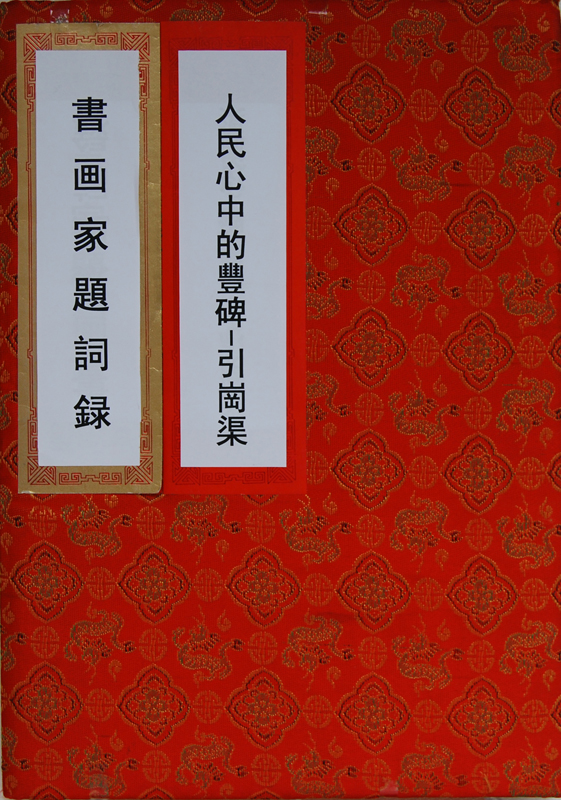 人民心中的豐碑-引崗渠
書画家題詞録